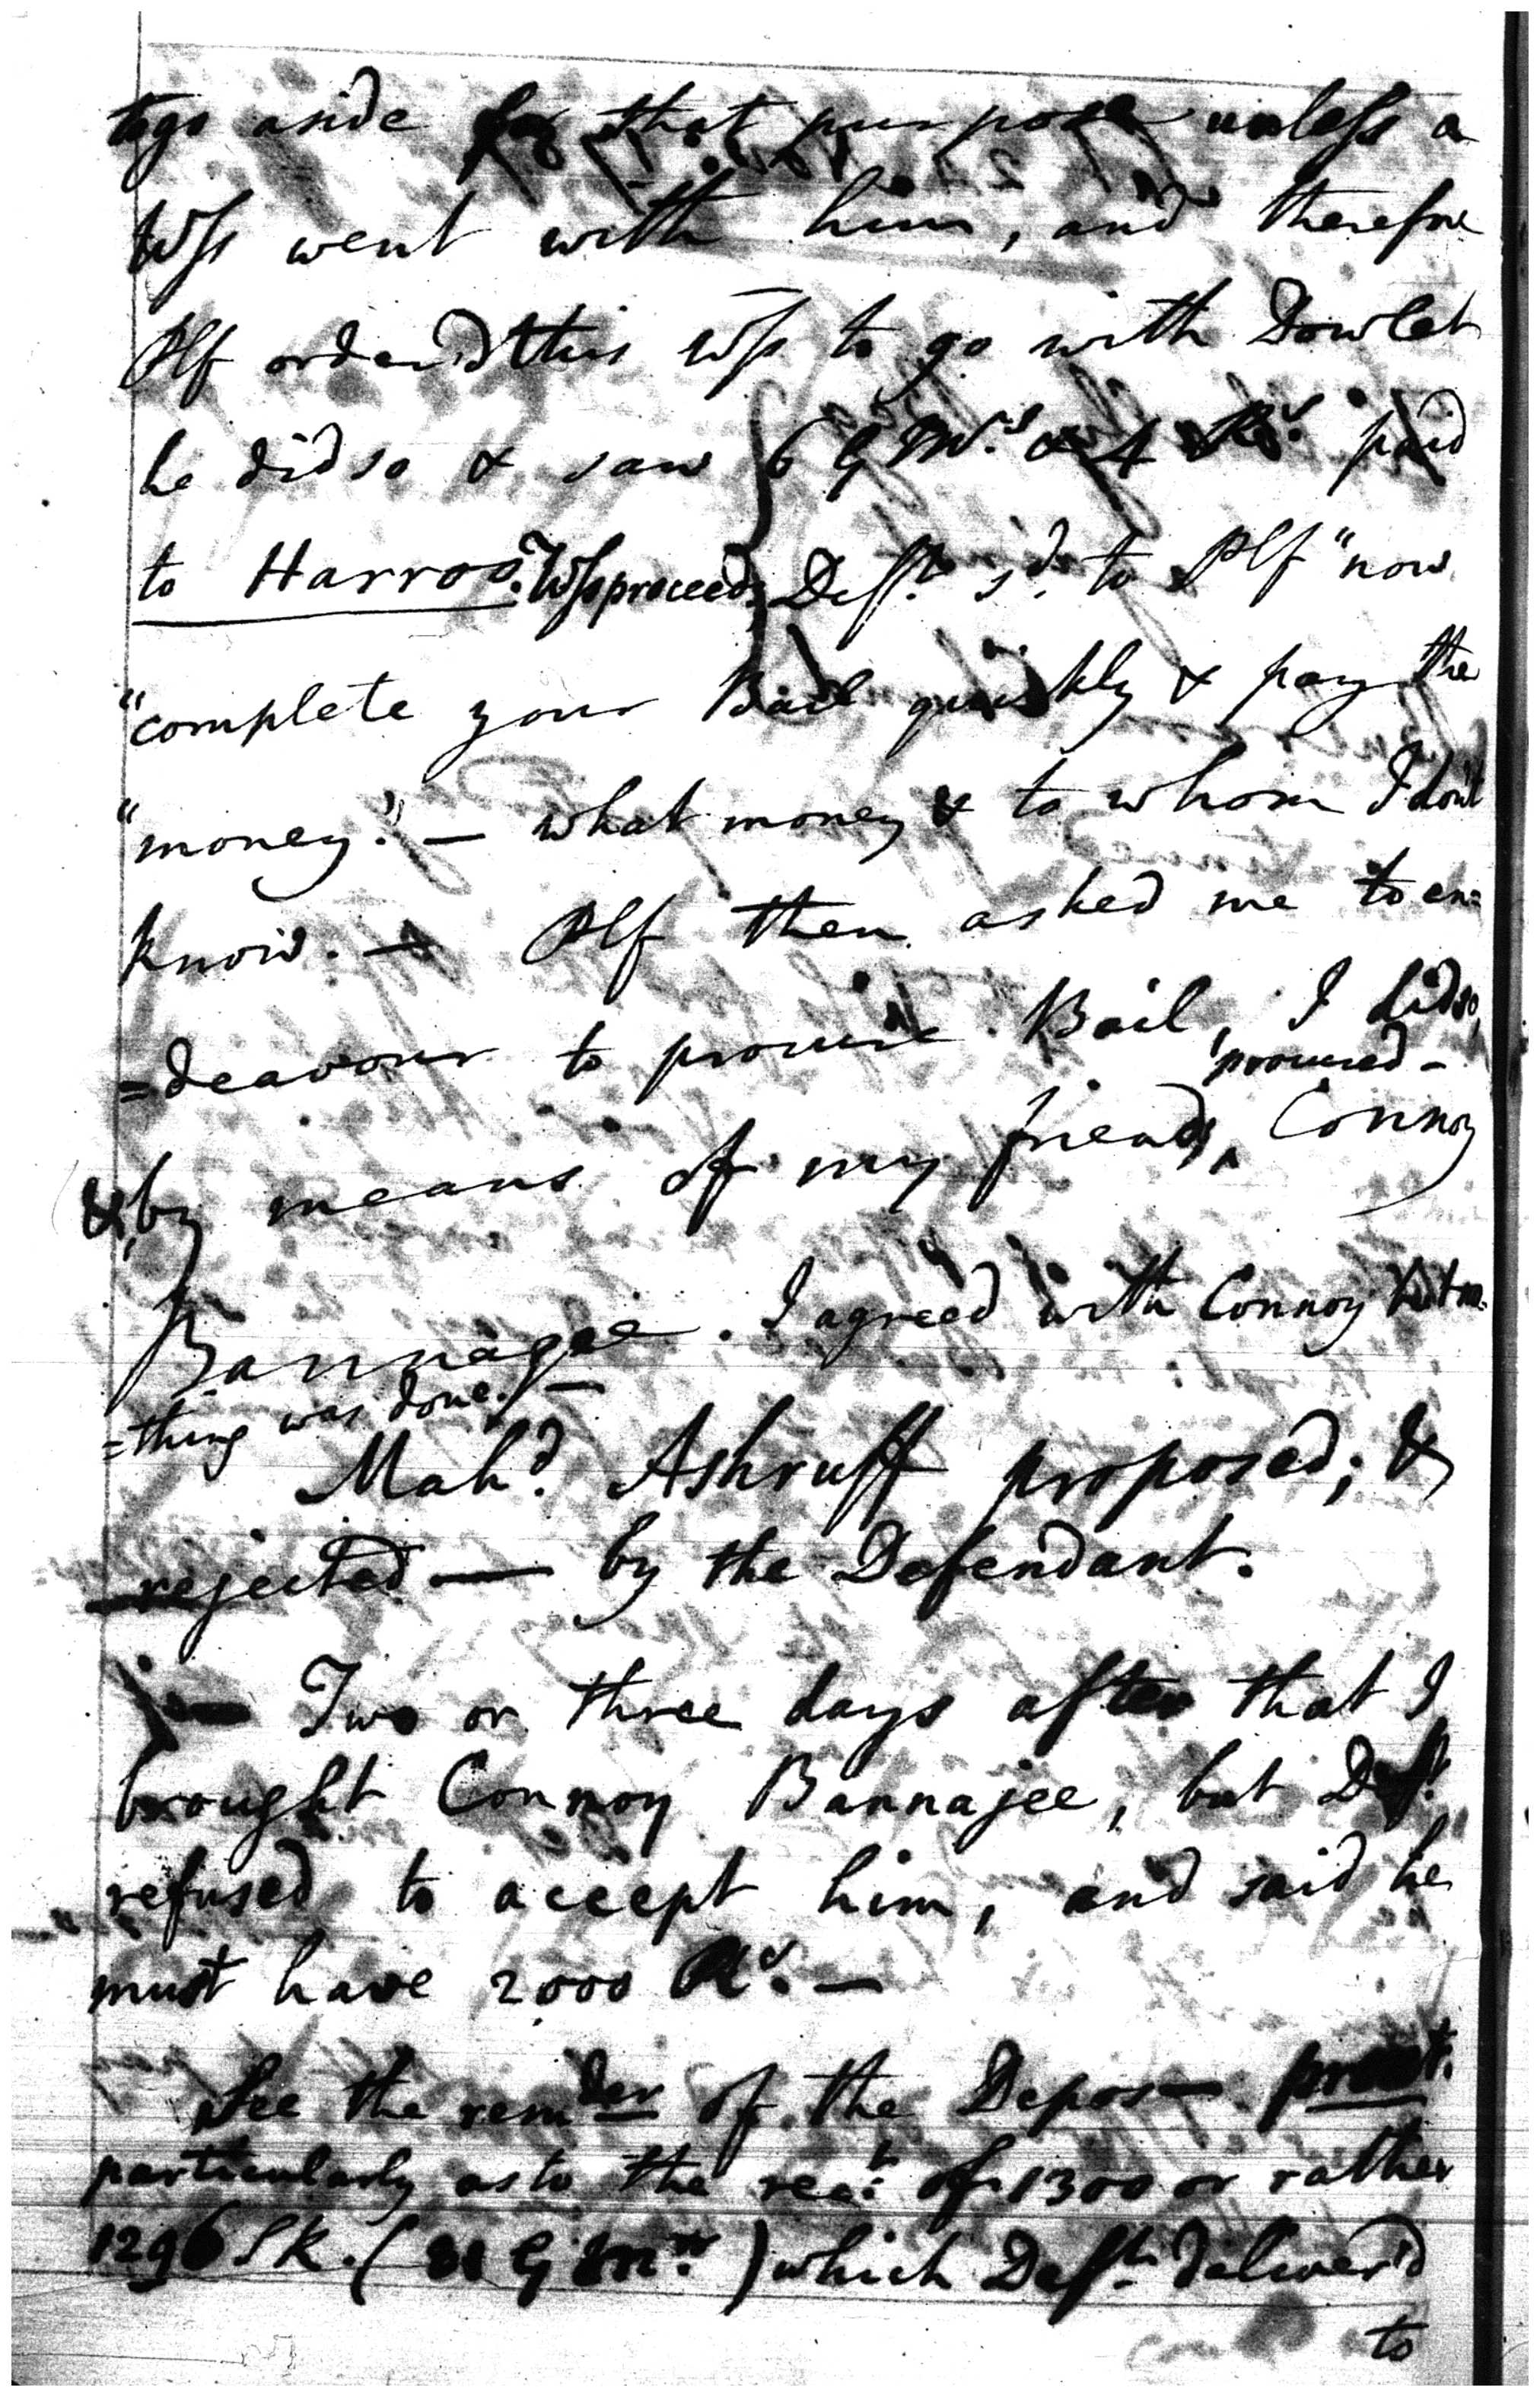 to go aside for that purpose unless a
Wss went with him, and therefore
Plf order'd this Wss to go with Dowlet
he did so & saw 6 G Mrs & 4 Rs. paid
to Harroo. Wss proceeds Deft. sd. to Plf "now
"complete your Bail quickly & pay the
"money." — what money & to whom I don't
know. — Plf then asked me to en=
=deavour to procure Bail, I did so,
& by means of my friends, procured - Connoy
Bannagee. I agreed with Connoy
=thing was done. —
Mahd. Ashruff proposed; &
rejected — by the Defendant.
— Two or three days after that I
brought Connoy Bannajee, but Deft.
refused to accept him, and said he
must have 2,000 Rs. —
See the remder of the Depos—
particularly as to the rect. of 1300 or rather
1296 SR. (81 G Mrs.) which Deft. deliver'd
to